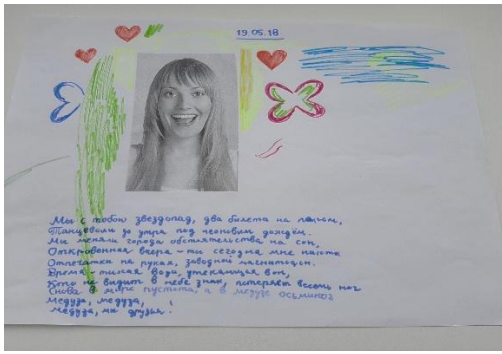 19.05.18
Мы с тобою звездопад, два билета на
Танцевали до утра под неоновым дождём.
Мы меняли города обстоятельства на сон,
Откровенная вчера – ты сегодня мне никто
Отпечатки на руках, заводной магнитофон.
Время – тихая вода, утекающая вон,
Кто не видит в небе знак, потеряет всеять ног
Снова в мире пустота, а в медузе осьминог
Медуза, медуза,
медуза, мы друзья!